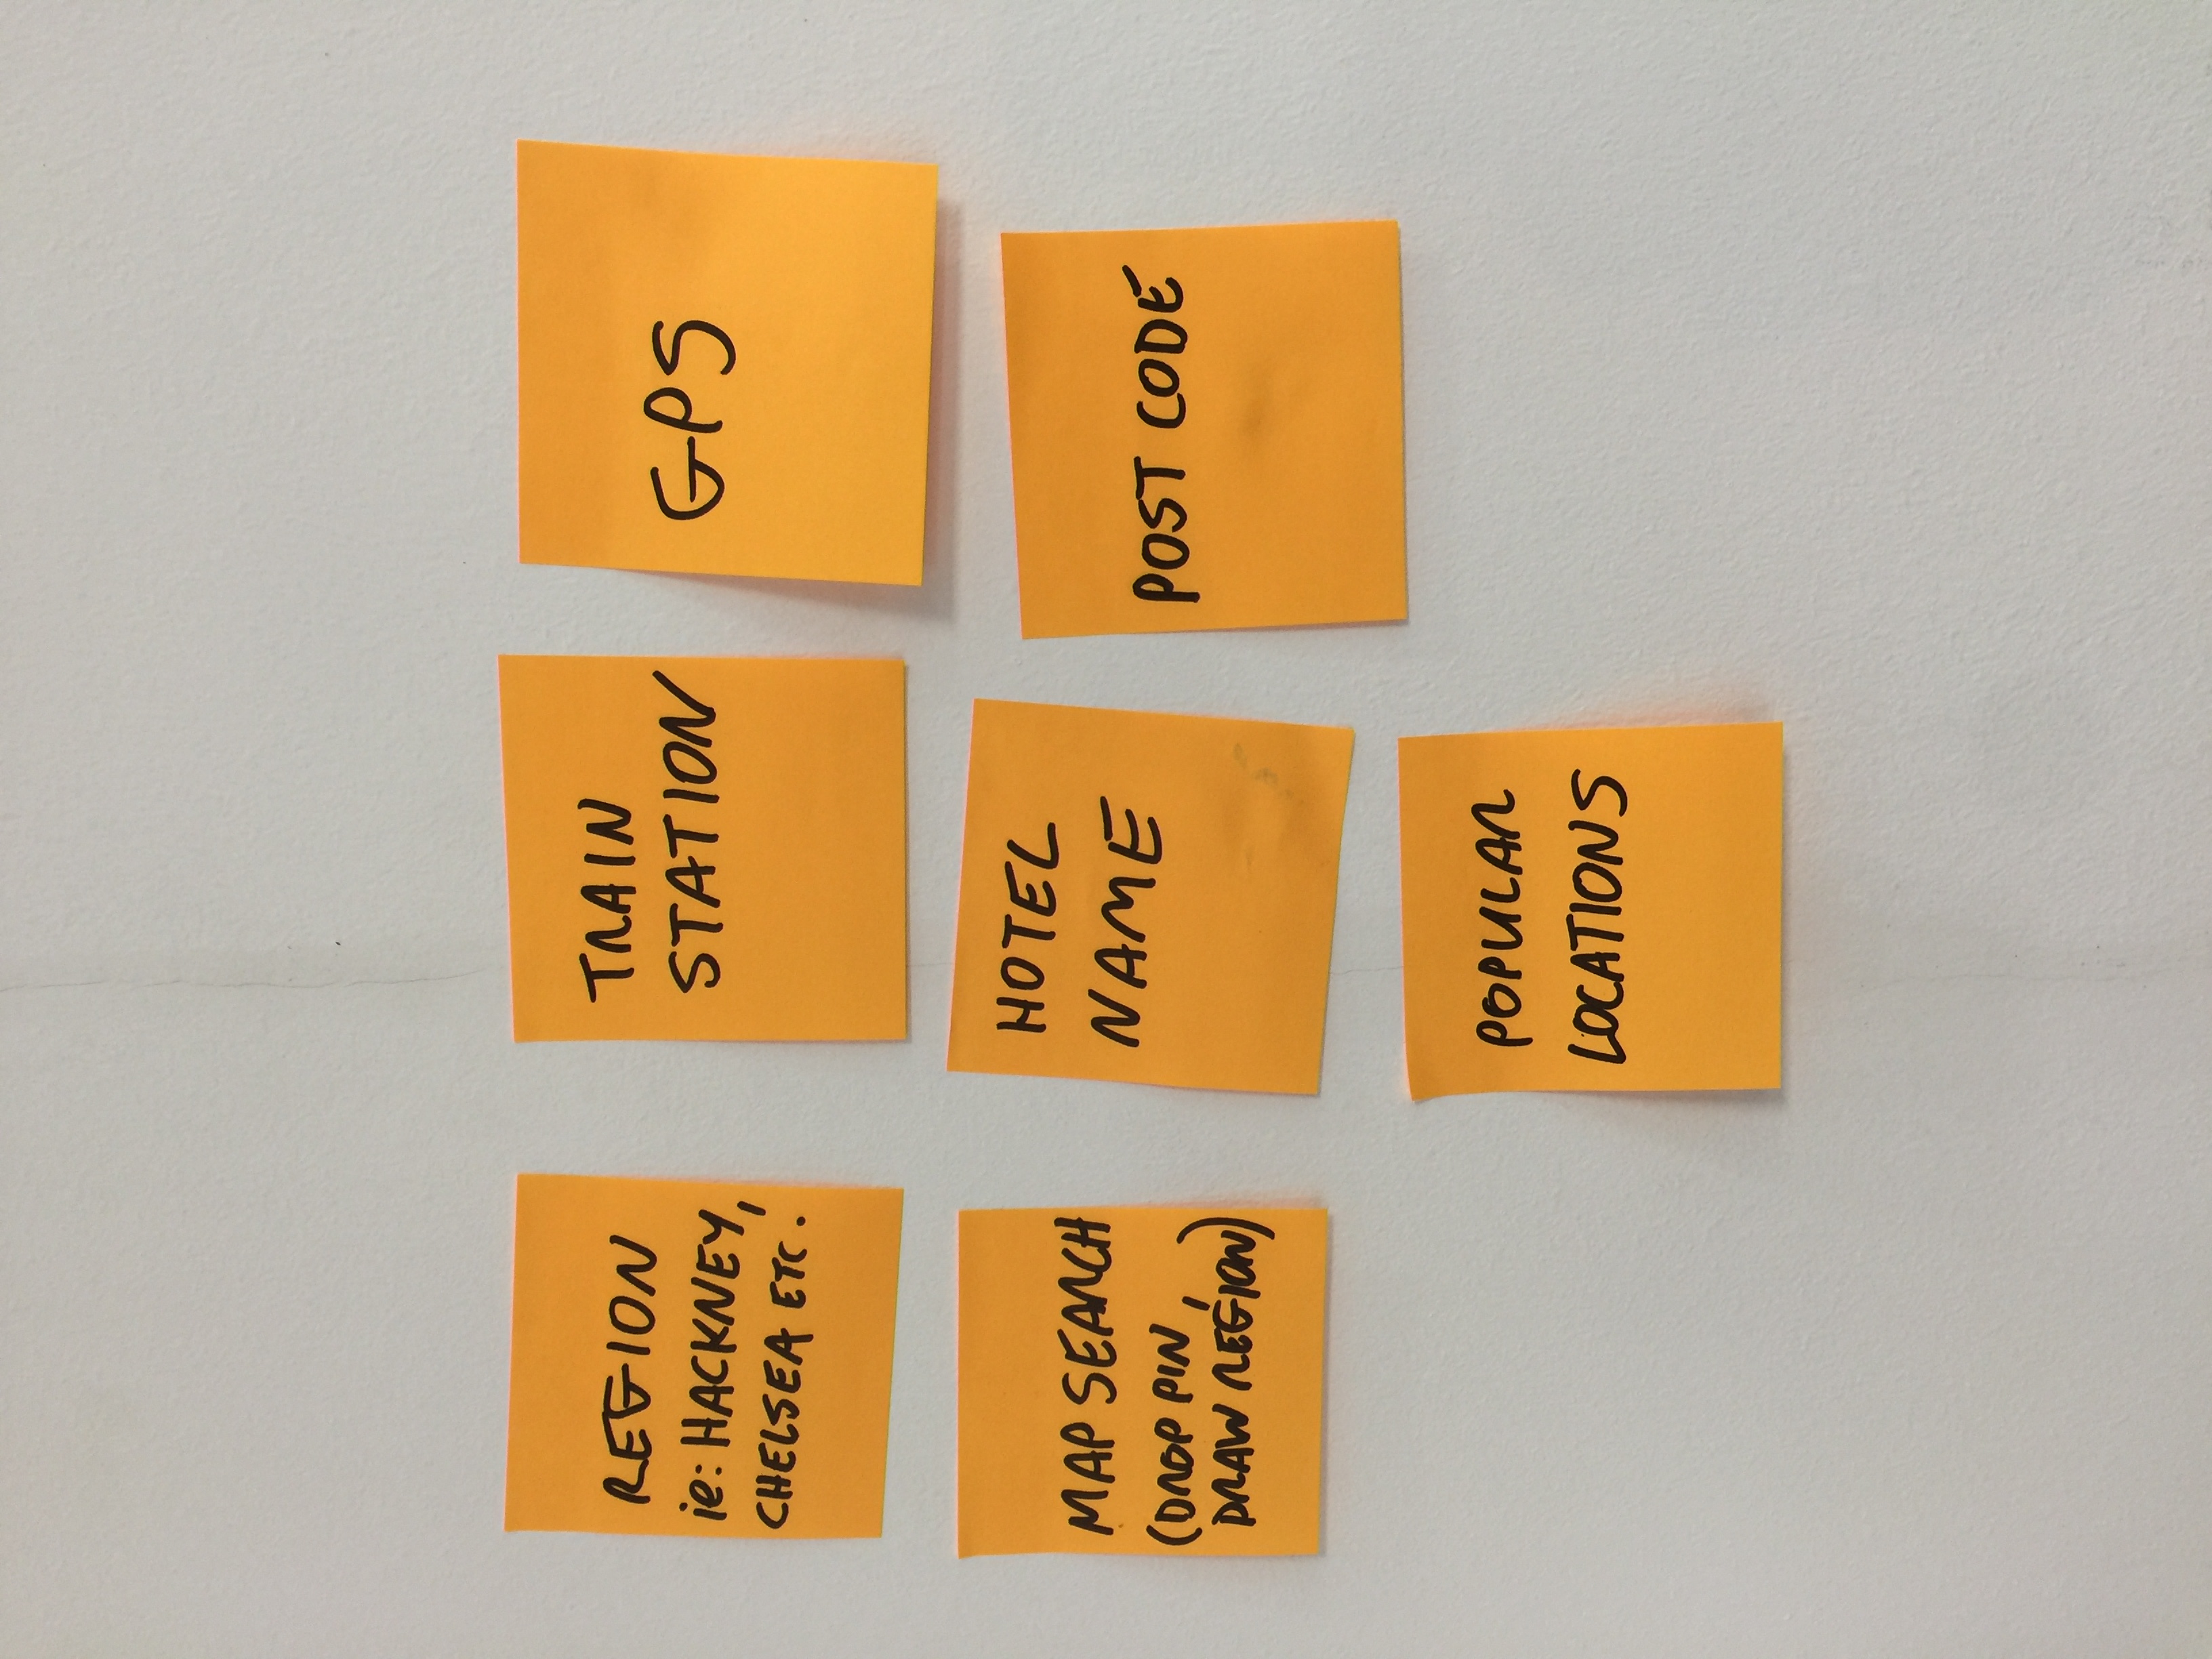 REGION
ie: HACKNEY,
CHELSEA ETC.
TRAIN
STATION
GPS
MAP SEARCH
(DROP PIN,
DRAW REGION)
HOTEL
NAME
POST CODE
POPULAR
LOCATIONS